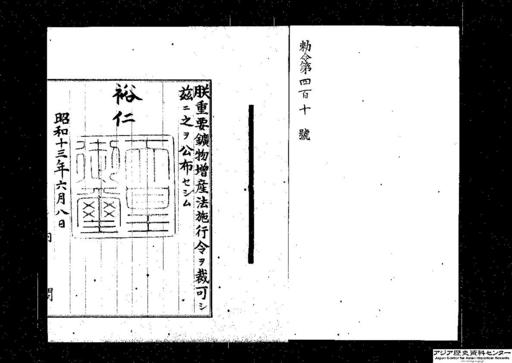 勅令第四百十號
朕重要鑛物增産法施行令ヲ裁可シ
玆ニ之ヲ公布セシム
裕仁
天皇御璽
昭和十三年六月八日
内閣
アジア歴史資料センター
Japan Center for Asian Historical Records